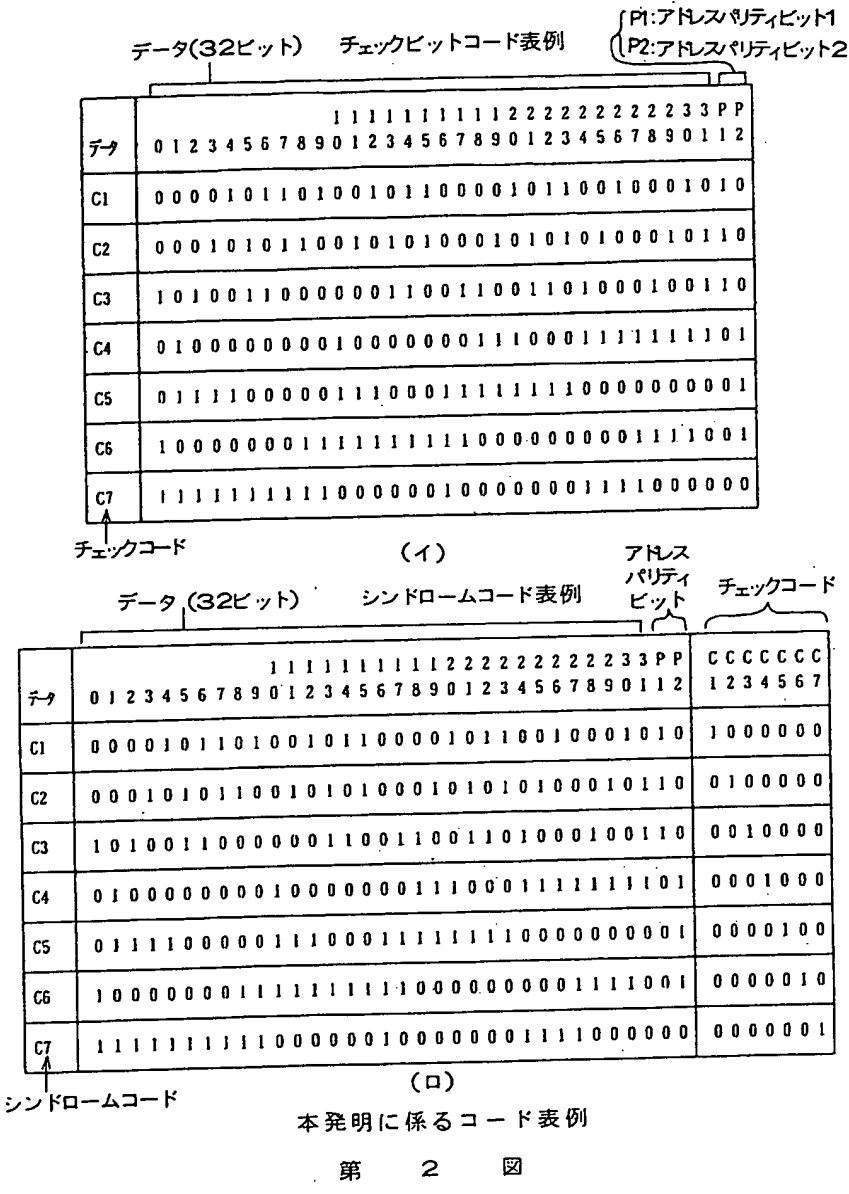 P1:アドレスパリティビット1
データ(32ビット) チェックビットコード表例 P2:アドレスパリティビット2
1 1 1 1 1 1 1 1 1 1 2 2 2 2 2 2 2 2 2 2 3 3 P P
データ 0 1 2 3 4 5 6 7 8 9 0 1 2 3 4 5 6 7 8 9 0 1 2 3 4 5 6 7 8 9 0 1 1 2
C1 0 0 0 0 1 0 1 1 0 1 0 0 1 0 1 1 0 0 0 0 1 0 1 1 0 0 1 0 0 0 1 0 1 0
C2 0 0 0 1 0 1 0 1 1 0 0 1 0 1 0 1 0 0 0 1 0 1 0 1 0 1 0 0 0 1 0 1 1 0
C3 1 0 1 0 0 1 1 0 0 0 0 0 0 1 1 0 0 1 1 0 0 1 1 0 1 0 0 0 1 0 0 1 1 0
C4 0 1 0 0 0 0 0 0 0 0 1 0 0 0 0 0 0 0 1 1 1 0 0 0 1 1 1 1 1 1 1 1 0 1
C5 0 1 1 1 1 0 0 0 0 0 1 1 1 0 0 0 1 1 1 1 1 1 1 1 0 0 0 0 0 0 0 0 0 1
C6 1 0 0 0 0 0 0 0 1 1 1 1 1 1 1 1 1 1 0 0 0 0 0 0 0 0 0 1 1 1 1 0 0 1
C7 1 1 1 1 1 1 1 1 1 1 0 0 0 0 0 0 1 0 0 0 0 0 0 0 1 1 1 1 0 0 0 0 0 0
チェックコード
(イ)
データ(32ビット) シンドロームコード表例 アドレスパリティビット チェックコード
1 1 1 1 1 1 1 1 1 1 2 2 2 2 2 2 2 2 2 2 3 3 P P C C C C C C C
データ 0 1 2 3 4 5 6 7 8 9 0 1 2 3 4 5 6 7 8 9 0 1 2 3 4 5 6 7 8 9 0 1 1 2 1 2 3 4 5 6 7
C1 0 0 0 0 1 0 1 1 0 1 0 0 1 0 1 1 0 0 0 0 1 0 1 1 0 0 1 0 0 0 1 0 1 0 1 0 0 0 0 0 0
C2 0 0 0 1 0 1 0 1 1 0 0 1 0 1 0 1 0 0 0 1 0 1 0 1 0 1 0 0 0 1 0 1 1 0 0 1 0 0 0 0 0
C3 1 0 1 0 0 1 1 0 0 0 0 0 0 1 1 0 0 1 1 0 0 1 1 0 1 0 0 0 1 0 0 1 1 0 0 0 1 0 0 0 0
C4 0 1 0 0 0 0 0 0 0 0 1 0 0 0 0 0 0 0 1 1 1 0 0 0 1 1 1 1 1 1 1 1 0 1 0 0 0 1 0 0 0
C5 0 1 1 1 1 0 0 0 0 0 1 1 1 0 0 0 1 1 1 1 1 1 1 1 0 0 0 0 0 0 0 0 0 1 0 0 0 0 1 0 0
C6 1 0 0 0 0 0 0 0 1 1 1 1 1 1 1 1 1 1 0 0 0 0 0 0 0 0 0 1 1 1 1 0 0 1 0 0 0 0 0 1 0
C7 1 1 1 1 1 1 1 1 1 1 0 0 0 0 0 0 1 0 0 0 0 0 0 0 1 1 1 1 0 0 0 0 0 0 0 0 0 0 0 0 1
シンドロームコード
(ロ)
本発明に係るコード表例
第 2 図